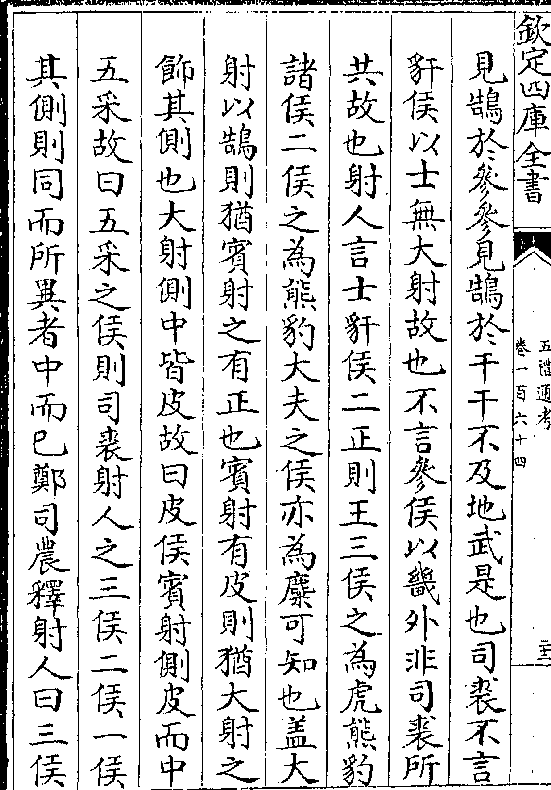 欽定四庫全書
五禮通考
卷一百六十四
見鵠於參參見鵠於干干不及地武是也司裘不言
豻侯以士無大射故也不言參侯以畿外非司裘所
共故也射人言士豻侯二正則王三侯之為虎熊豹
諸侯二侯之為熊豹大夫之侯亦為麋可知也盖大
射以鵠則猶賓射之有正也賓射有皮則猶大射之
飾其側也大射側中皆皮故曰皮侯賓射側皮而中
五采故曰五采之侯則司裘射人之三侯二侯一侯
其側則同而所異者中而已鄭司農釋射人曰三侯